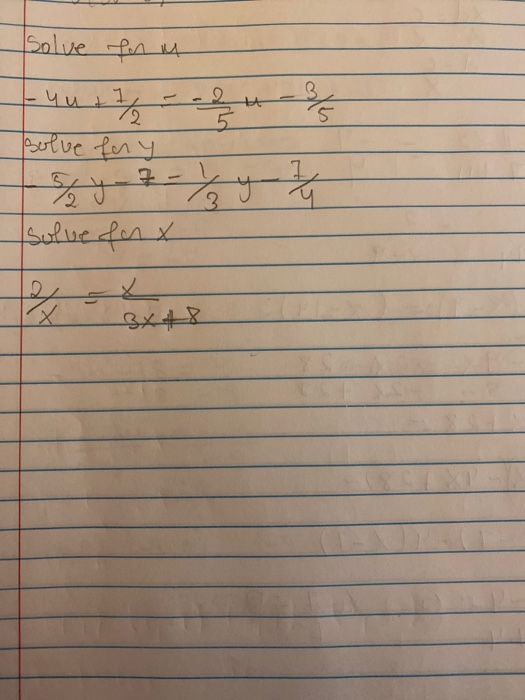 Solve for u
-4u + 7/2 = -2/5 u - 3/5
Solve for y
- 5/2 y - 7 = 1/3 y - 7/4
Solve for x
2/x = x/3x+8